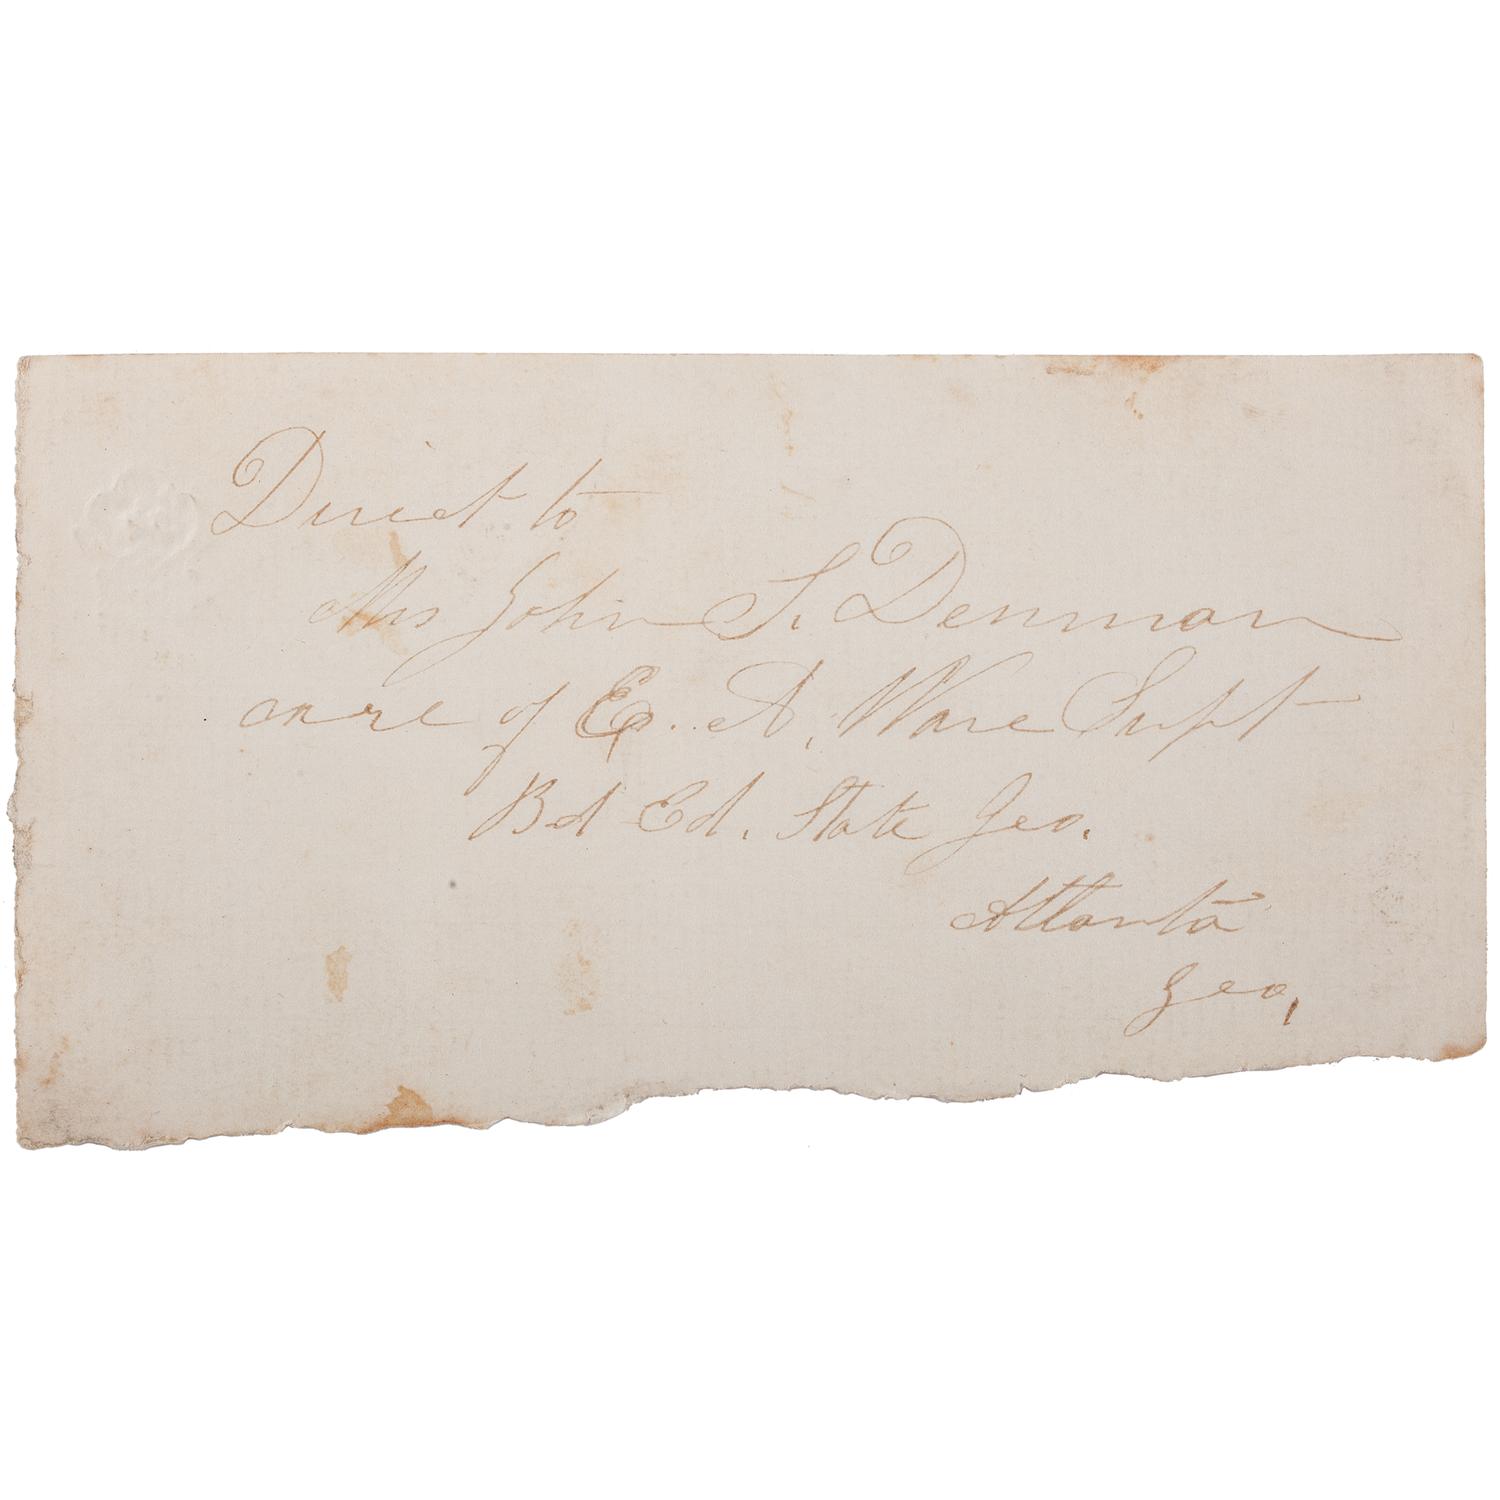 Direct to
Mrs John S. Denman
care of E. A. Ware Supt
Bd Ed. State Geo.
Atlanta
Geo,